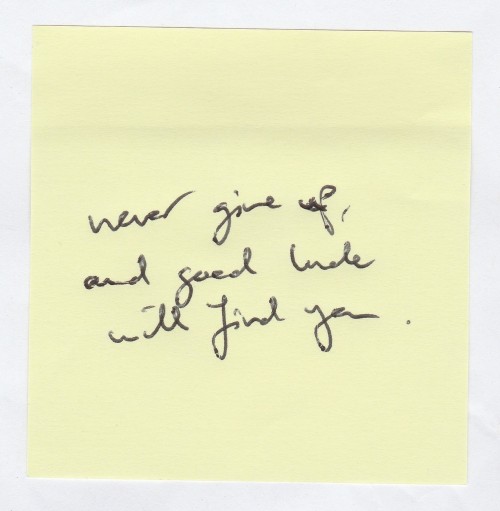 never give up,
and good luck
will find you.